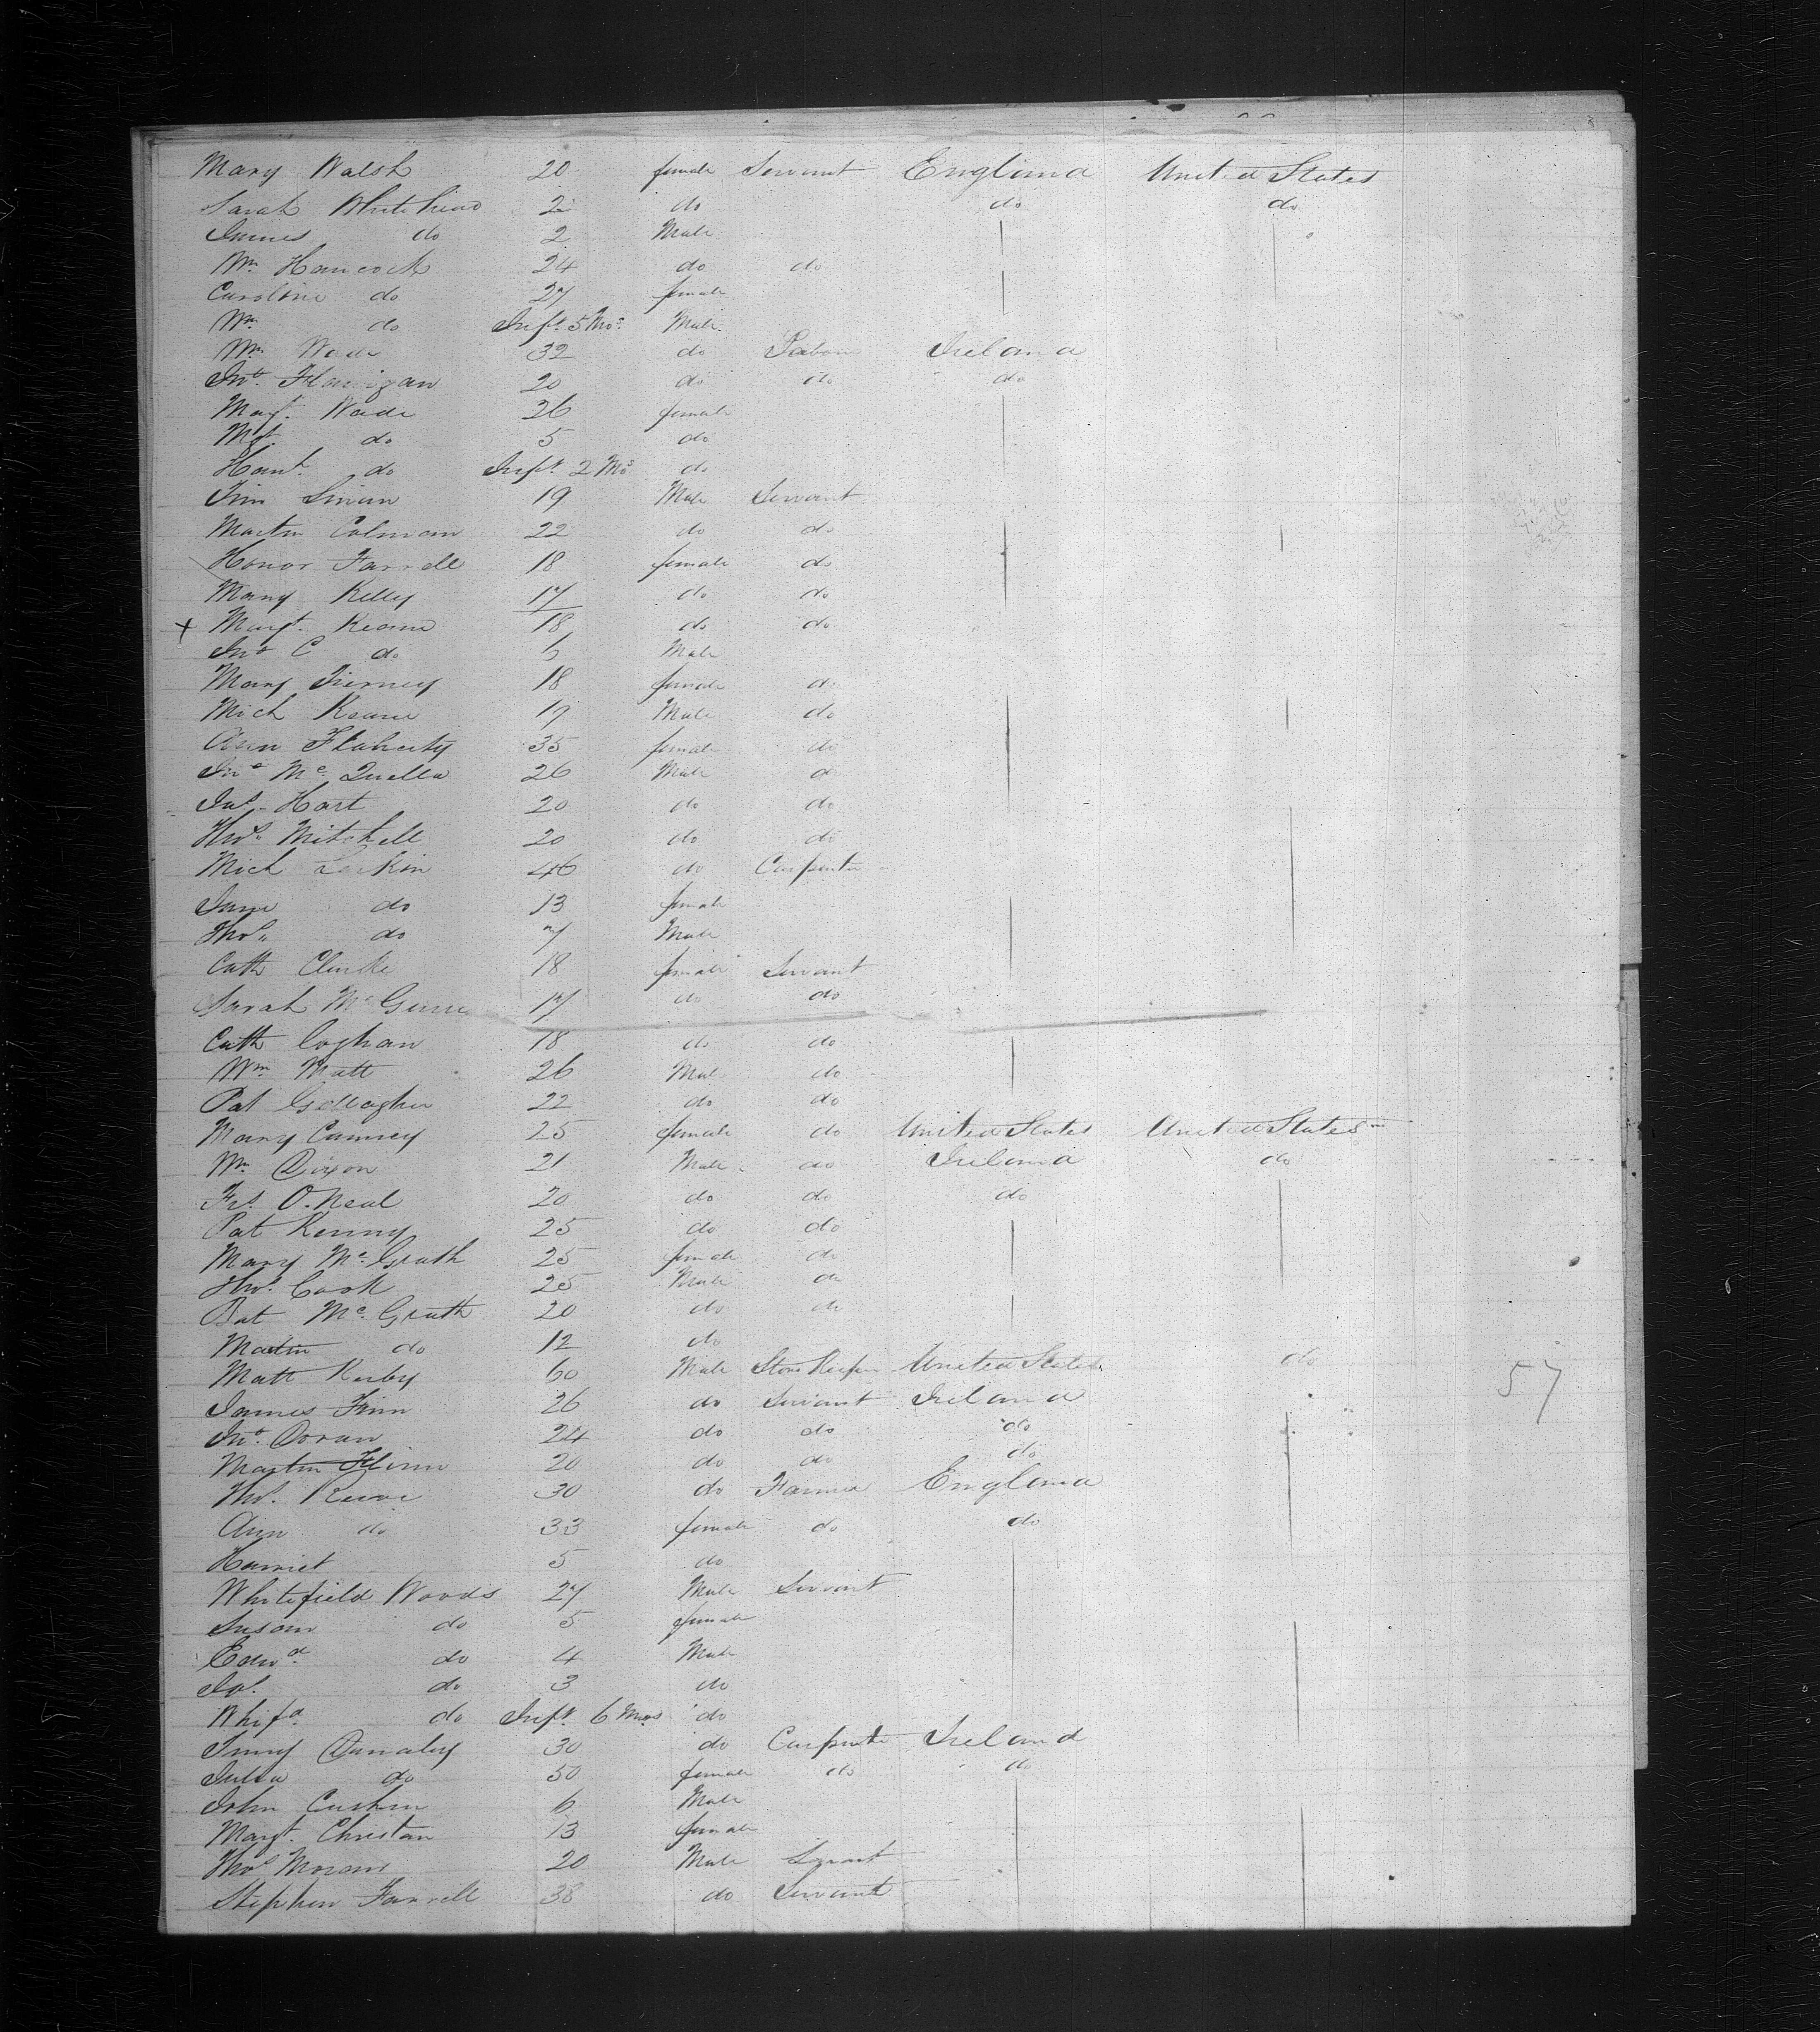 Mary Walsh 20 female Servant England United States
Sarah Whitehead 2 do do do
James do 2 Male
Wm Hancock 24 do do
Caroline do 27 female
Wm do Inft. 5 Mos. Male
Wm Wade 32 do Labor Ireland
Jno. Flanigan 20 do do do
Magt. Wade 26 female
Mgt. do 5 do
Hant. do Inft. 2 Mos. do
Tim 19 Male Servant
Martin Colman 22 do do
Honor Farrell 18 female do
Mary Kelly 17 do do
x Margt. Keane 18 do do
Jno C do 6 Male
Mary Tierney 18 female do
Mich Keane 17 Male do
Ann Flaherty 35 female do
Jno Mc Quella 26 Male do
Jas. Hart 20 do do
Thos. Mitchell 20 do do
Mich Larkin 46 do Carpenter
Jane do 13 female
Thos. do 7 Male
Cath Clarke 18 female Servant
Sarah Mc 17 do do
Cath Coghan 18 do do
Wm Matt 26 Male do
Pat Gallagher 22 do do
Mary Cumrey 25 female do United States United States
Wm Dixon 21 Male do Ireland do
Frs. O. Neal 20 do do do
Pat Kenny 25 do do
Mary Mc Grath 25 female do
Thos. Cook 25 Male do
Bat Mc. Grath 20 do do
Martin do 12 do
Matt Kerby 60 Male Store Keeper United States do 57
James Finn 26 do Servant Ireland
Jno. Doran 24 do do do
Martin Flinn 20 do do do
Thos. Reeve 30 do Farmer England
Ann do 33 female do do
Harriet 5 do
Whitefield Woods 27 Male Servant
Susan do 5 female
Edwd. do 4 Male
Jos. do 3 do
Whifd. do Inft. 6 Mos do
Dunahy 30 do Carpenter Ireland
Julia do 50 female do do
John Cushin 6 Male
Margt. Christan 13 female
Thos Moran 20 Male Servant
Stephen Farrell 38 do Servant